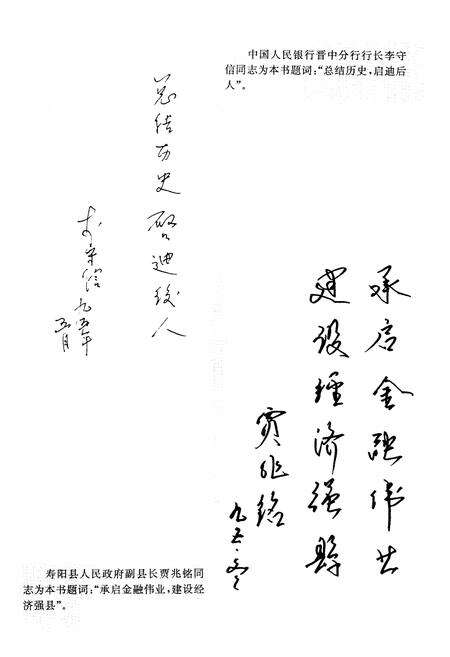 中国人民银行晋中分行行长李守
信同志为本书题词：“总结历史，启迪后
人”。
总结历史 启迪後人
李守信 九五年
五月
承启金融伟业
建设经济强縣
贾兆铭
九五·冬
寿阳县人民政府副县长贾兆铭同
志为本书题词：“承启金融伟业，建设经
济强县”。